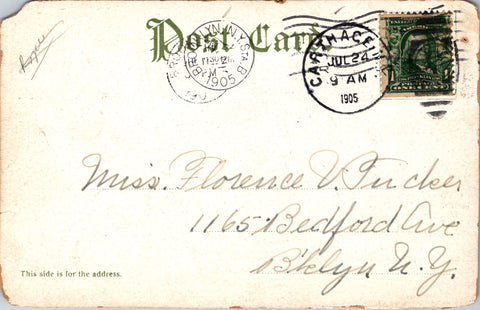 Post Card
BROOKLYN, N.Y. STA.B.
1905
CARTHAGE
JUL 24
9 AM
1905
ONE CENT
Miss. Florence V. Tucker
1165 Bedford Ave
B'klyn. N.Y.
This side is for the address.